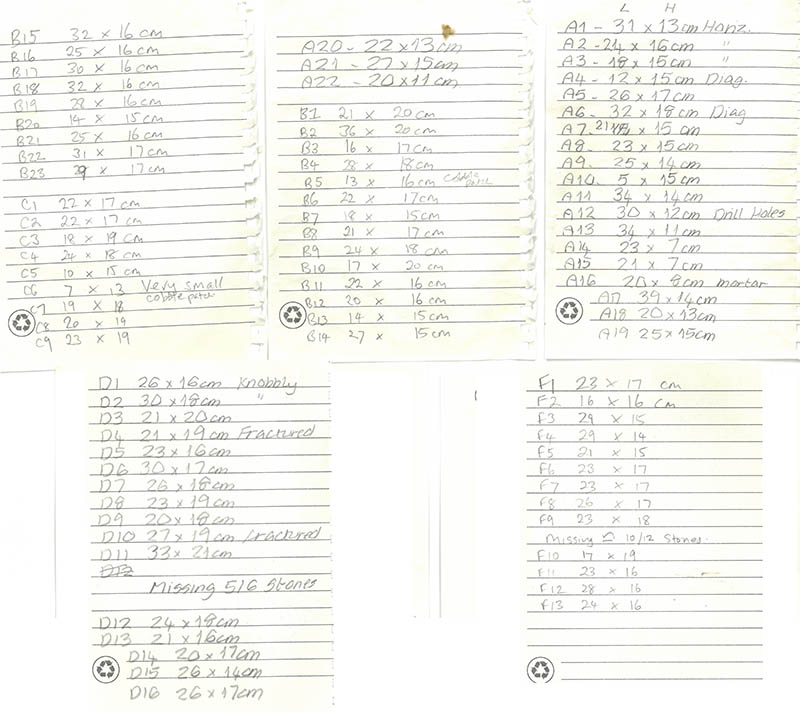 B15 32 x 16 cm
B16 25 x 16 cm
B17 30 x 16 cm
B18 32 x 16 cm
B19 28 x 16 cm
B20 14 x 15 cm
B21 25 x 16 cm
B22 31 x 17 cm
B23 29 x 17 cm
C1 22 x 17 cm
C2 22 x 17 cm
C3 18 x 19 cm
C4 24 x 18 cm
C5 10 x 15 cm
C6 7 x 13 Very small
cobble patch
C7 19 x 18
C8 20 x 19
C9 23 x 19
A20 - 22 x 13 cm
A21 - 27 x 15 cm
A22 - 20 x 11 cm
B1 21 x 20 cm
B2 36 x 20 cm
B3 16 x 17 cm
B4 28 x 18 cm
B5 13 x 16 cm cobble
patch
B6 22 x 17 cm
B7 18 x 15 cm
B8 21 x 17 cm
B9 24 x 18 cm
B10 17 x 20 cm
B11 22 x 16 cm
B12 20 x 16 cm
B13 14 x 15 cm
B14 27 x 15 cm
L H
A1 - 31 x 13 cm Horiz.
A2 - 24 x 16 cm "
A3 - 18 x 15 cm "
A4 - 12 x 15 cm Diag.
A5 - 26 x 17 cm
A6 - 32 x 18 cm Diag
A7 - 21 x 15 cm
A8 - 23 x 15 cm
A9 - 25 x 14 cm
A10 5 x 15 cm
A11 34 x 14 cm
A12 30 x 12 cm Drill Holes
A13 34 x 11 cm
A14 23 x 7 cm
A15 21 x 7 cm
A16 20 x 8 cm mortar
A17 39 x 14 cm
A18 20 x 13 cm
A19 25 x 15 cm
D1 26 x 16 cm Knobbly
D2 30 x 18 cm "
D3 21 x 20 cm
D4 21 x 19 cm Fractured
D5 23 x 16 cm
D6 30 x 17 cm
D7 26 x 18 cm
D8 23 x 19 cm
D9 20 x 18 cm
D10 27 x 19 cm fractured
D11 33 x 21 cm
D12
Missing 5/6 Stones
D12 24 x 18 cm
D13 21 x 16 cm
D14 20 x 17 cm
D15 26 x 14 cm
D16 26 x 17 cm
F1 23 x 17 cm
F2 16 x 16 cm
F3 29 x 15
F4 29 x 14
F5 21 x 15
F6 23 x 17
F7 23 x 17
F8 26 x 17
F9 23 x 18
Missing 10/12 Stones
F10 17 x 19
F11 23 x 16
F12 28 x 16
F13 24 x 16